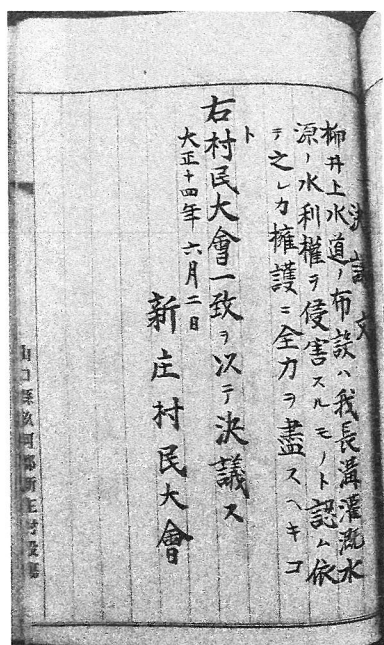 決議文
柳井上水道ノ布設ハ我長溝灌漑水
源ノ水利權ヲ侵害スルモノト認ム依
テ之レカ擁護ニ全力ヲ盡スヘキコ
ト
右村民大會一致ヲ以テ決議ス
大正十四年六月二日
新庄村民大會
山口縣玖珂郡新庄村役場